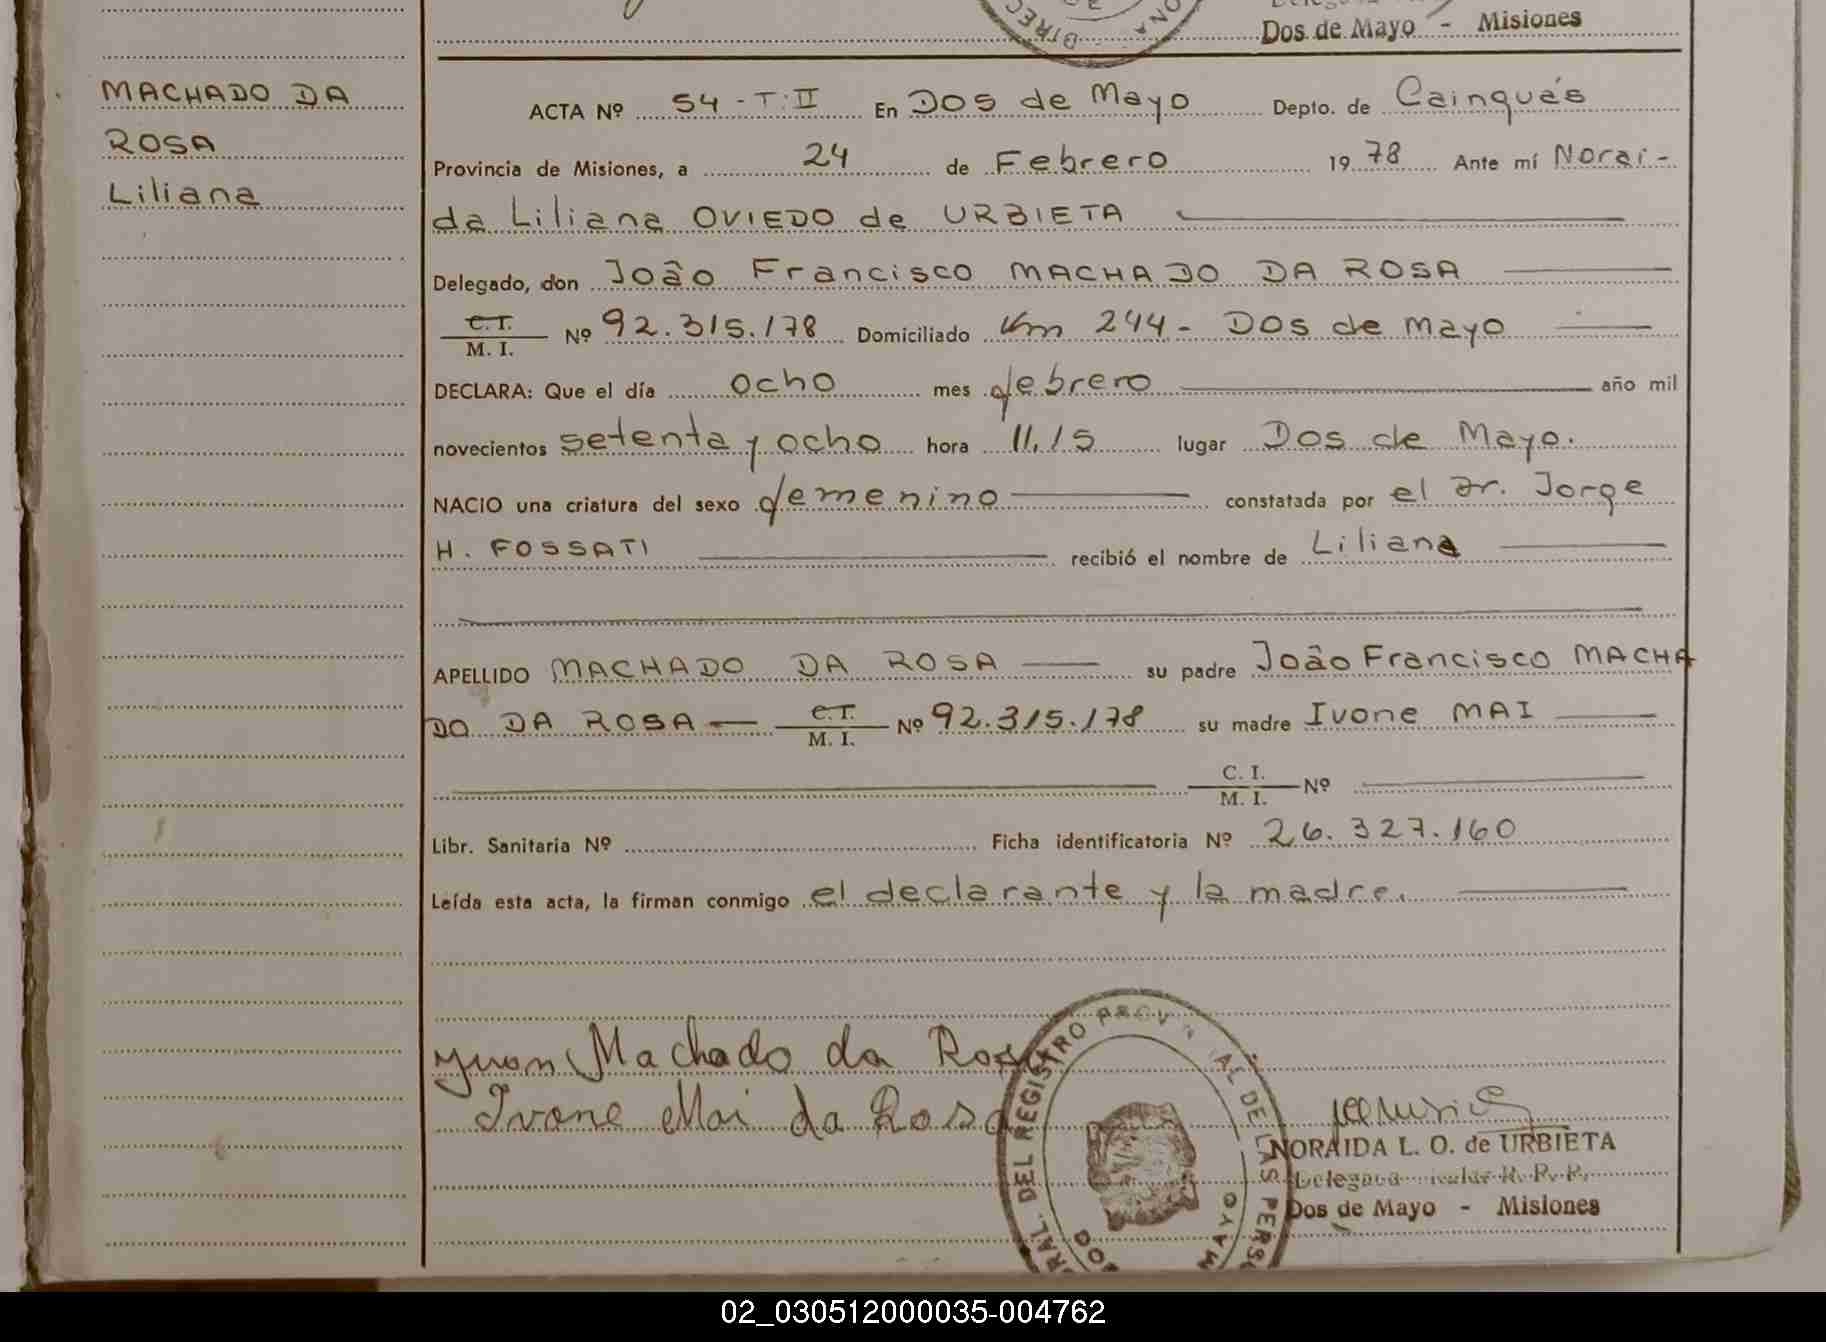 Dos de Mayo - Misiones
MACHADO DA
ROSA
Liliana
ACTA Nº 54 - T: II En Dos de Mayo Depto. de Cainguás
Provincia de Misiones, a 24 de Febrero 19 78 Ante mí Norai-
da Liliana OVIEDO de URBIETA
Delegado, don João Francisco MACHADO DA ROSA
C.I.
M. I. Nº 92.315.178 Domiciliado Km 244 - Dos de Mayo
DECLARA: Que el día ocho mes febrero año mil
novecientos setenta y ocho hora 11,15 lugar Dos de Mayo.
NACIO una criatura del sexo femenino constatada por el Dr. Jorge
H. FOSSATI recibió el nombre de Liliana
APELLIDO MACHADO DA ROSA su padre João Francisco MACHA
DO DA ROSA C.I.
M. I. Nº 92.315.178 su madre Ivone MAI
C. I.
M. I. Nº
Libr. Sanitaria Nº Ficha identificatoria Nº 26.327.160
Leída esta acta, la firman conmigo el declarante y la madre.
Machado da Rosa
Ivone Mai da Rosa
DEL REGISTRO AL DE LAS
MAYO
NORAIDA L. O. de URBIETA
Dos de Mayo - Misiones
02_030512000035-004762